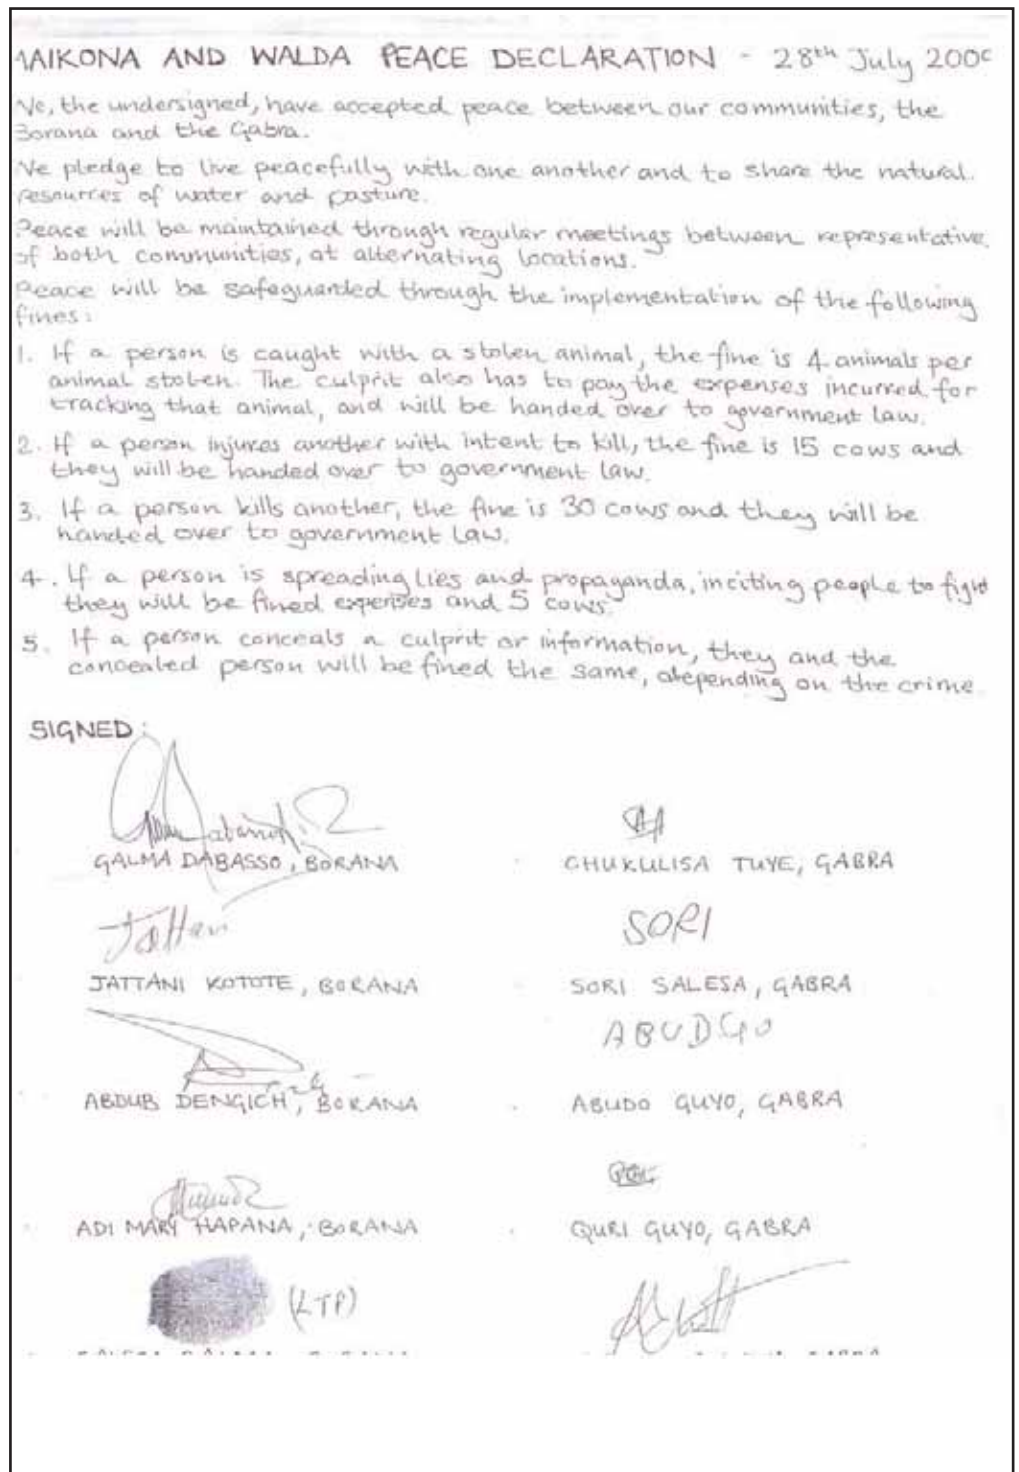 MAIKONA AND WALDA PEACE DECLARATION - 28th July 200
We, the undersigned, have accepted peace between our communities, the
Borana and the Gabra.
We pledge to live peacefully with one another and to share the natural
resources of water and pasture.
Peace will be maintained through regular meetings between representative
of both communities, at alternating locations.
Peace will be safeguarded through the implementation of the following
fines:
1. If a person is caught with a stolen animal, the fine is 4 animals per
animal stolen. The culprit also has to pay the expenses incurred for
tracking that animal, and will be handed over to government law.
2. If a person injures another with intent to kill, the fine is 15 cows and
they will be handed over to government law.
3. If a person kills another, the fine is 30 cows and they will be
handed over to government law.
4. If a person is spreading lies and propaganda, inciting people to fight
they will be fined expenses and 5 cows.
5. If a person conceals a culprit or information, they and the
concealed person will be fined the same, depending on the crime.
SIGNED:
GALMA DABASSO, BORANA
CHUKULISA TUYE, GABRA
Jattani
SORI
JATTANI KOTOTE, BORANA
SORI SALESA, GABRA
ABUDGO
ABDUB DENGICH, BORANA
ABUDO GUYO, GABRA
ADI MARY HAPANA, BORANA
QURI GUYO, GABRA
(LTP)